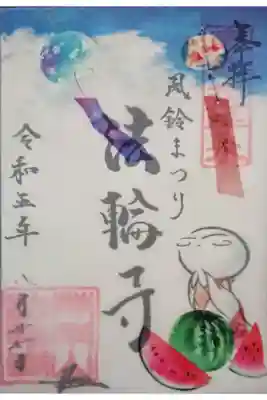 奉拝
風鈴まつり
法輪寺
令和五年